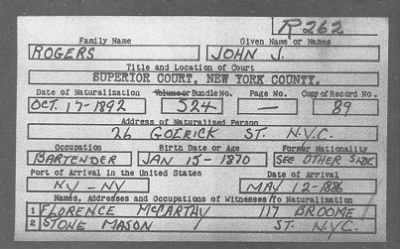 R 262
Family Name Given Name or Names
ROGERS JOHN J.
Title and Location of Court
SUPERIOR COURT, NEW YORK COUNTY.
Date of Naturalization Volume or Bundle No. Page No. Copy of Record No.
OCT. 17-1892 524 — 89
Address of Naturalized Person
26 GOERICK ST. N.Y.C.
Occupation Birth Date or Age Former Nationality
BARTENDER JAN 15-1870 SEE OTHER SIDE
Port of Arrival in the United States Date of Arrival
NY-NY MAY 12-1886
Names, Addresses and Occupations of Witnesses To Naturalization
1 FLORENCE McCARTHY 117 BROOME
2 STONE MASON ST. NYC.